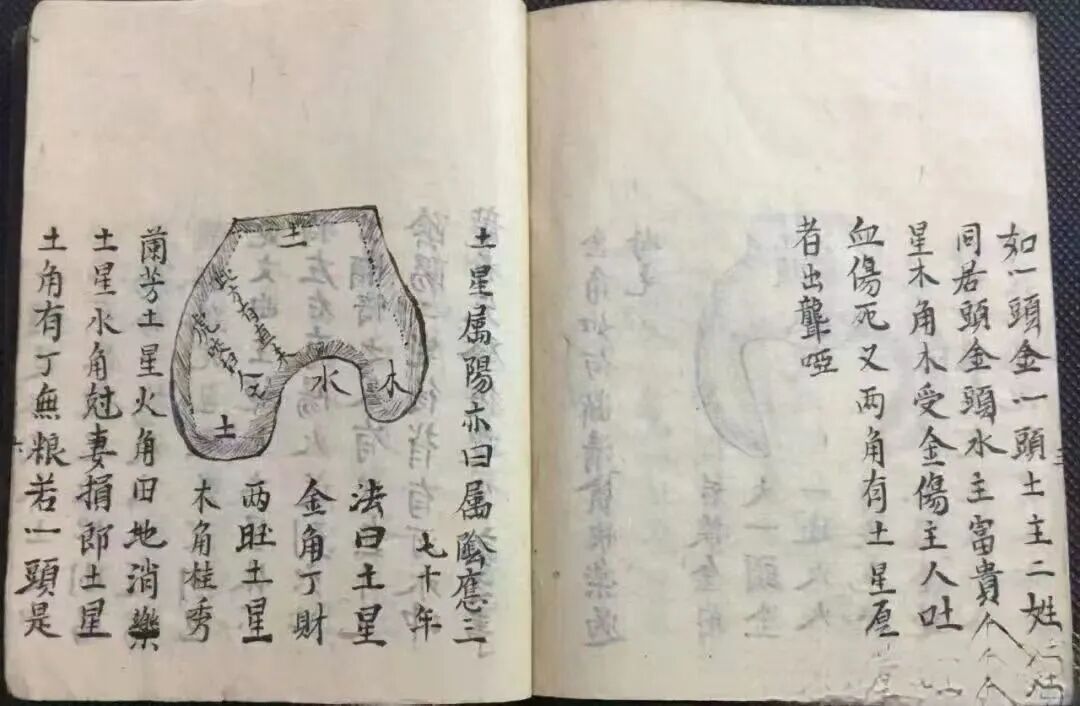 如一頭金一頭土主二姓
同居頭金頭水主富貴
星木角木受金傷主人吐
血傷死又两角有土星
者出聾啞
土星属陽亦曰属陰應三
七十年
法曰土星
金角丁財
两旺土星
木角桂秀
蘭芳土星火角田地消
土星水角尅妻損郎土星
土角有丁無粮若一頭是
土
水
木
土